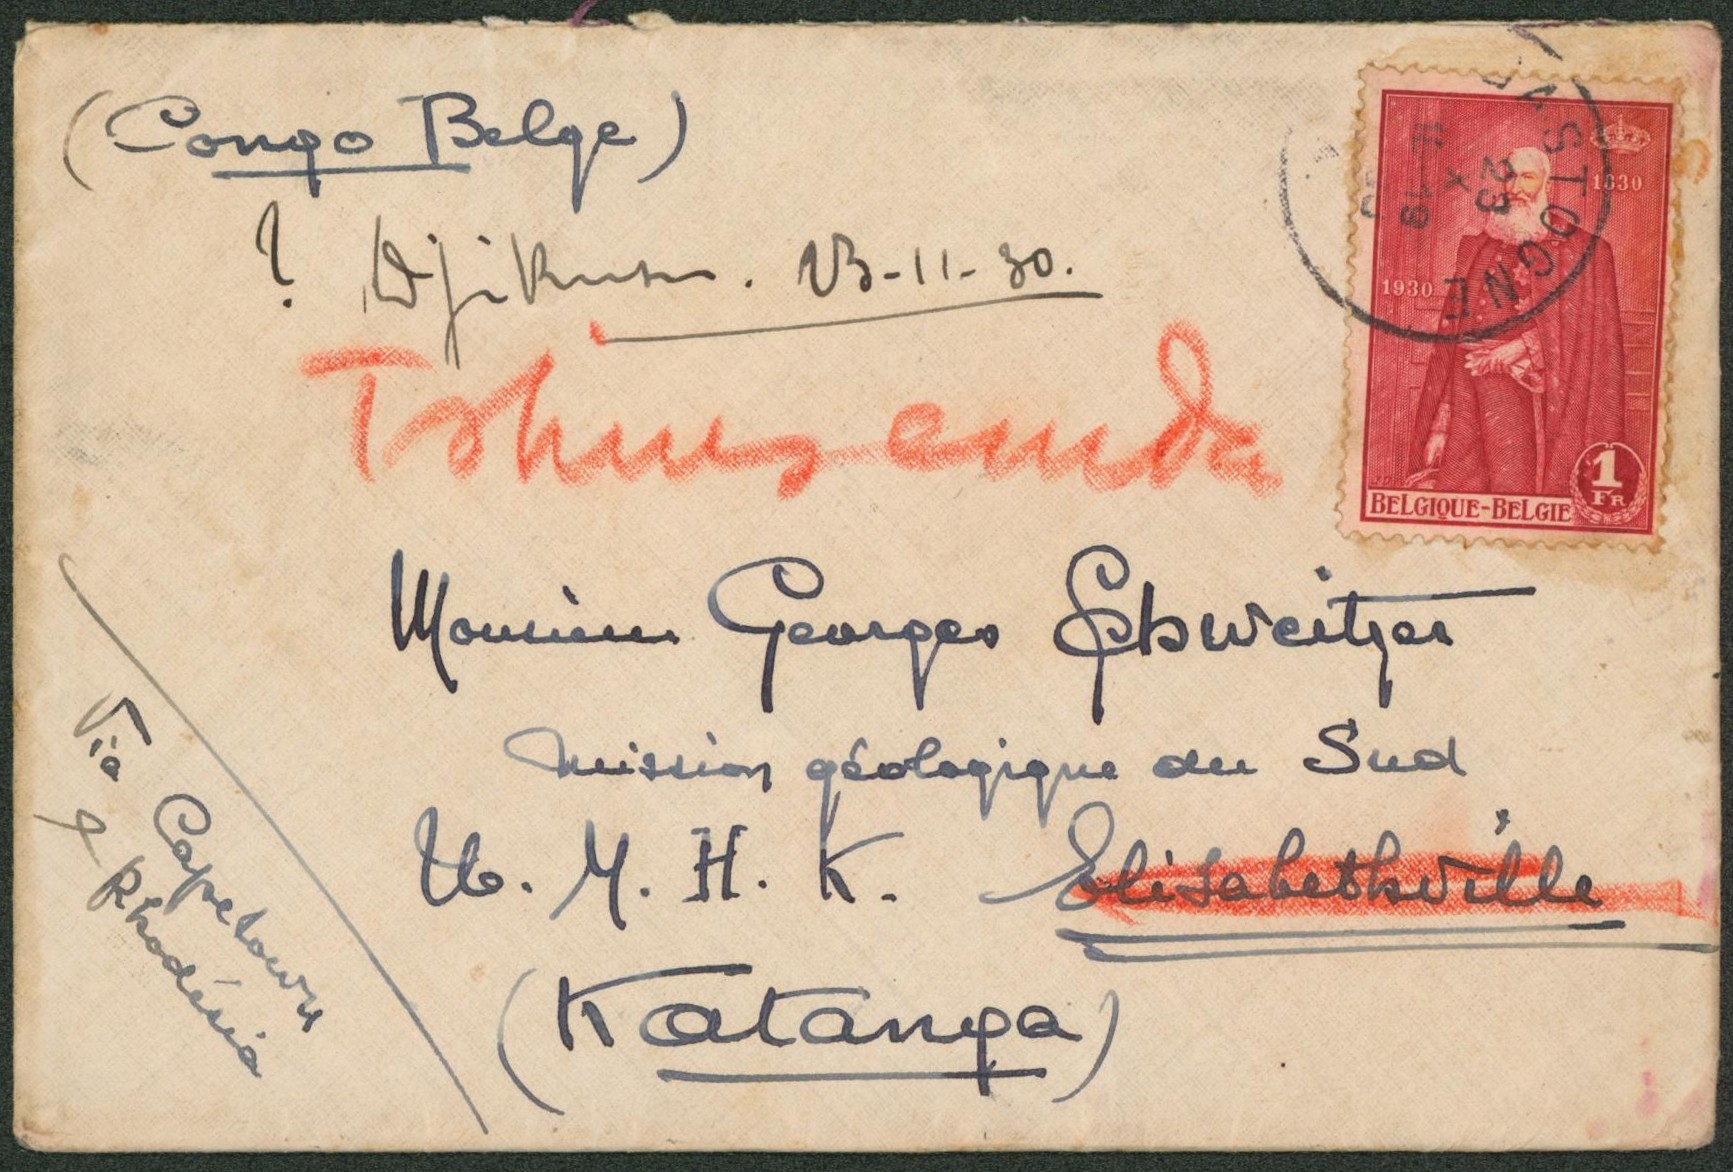 (Congo Belge)
? Djikusu. 23-11-30.
Tshinsenda
1830
1930
1
FR
BELGIQUE-BELGIE
23
X
11-19
Monsieur Georges Schweitzer
mission géologique du Sud
U. M. H. K. Elisabethville
(Katanga)
Via Capetown
& Rhodésia